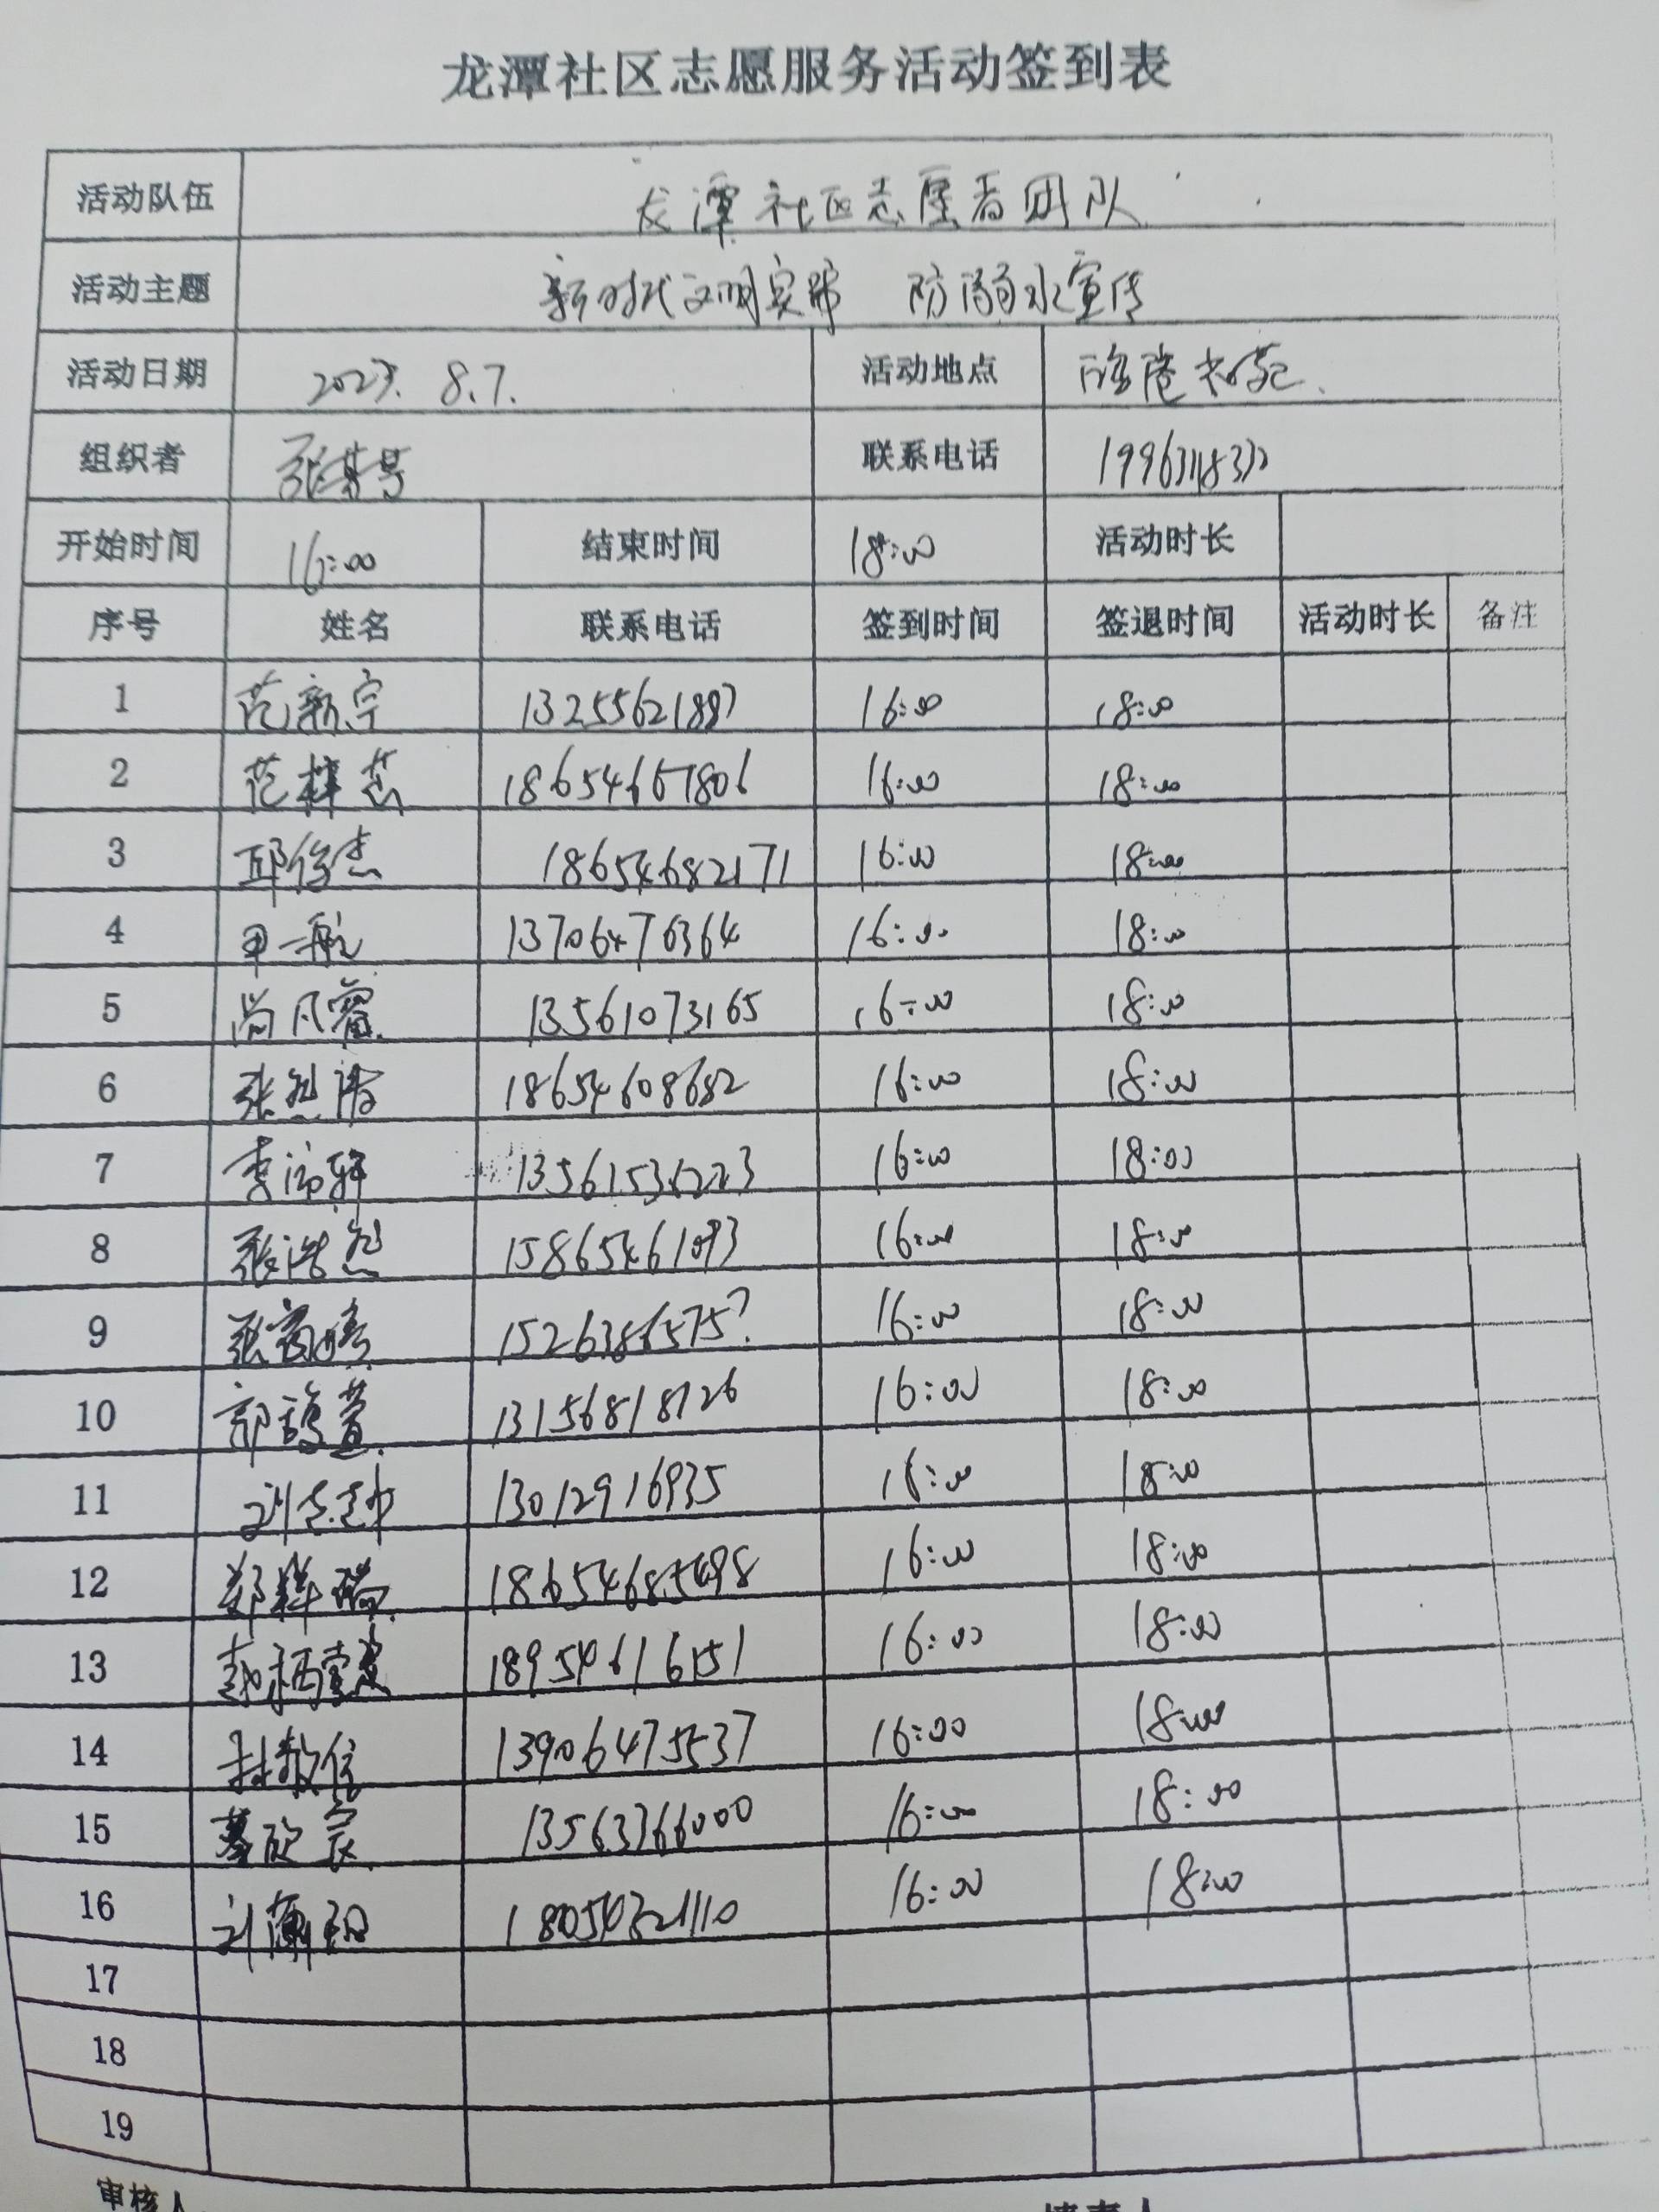 龙潭社区志愿服务活动签到表
活动队伍 龙潭社区志愿者团队
活动主题 新时代文明实践 防溺水宣传
活动日期 2023. 8.7. 活动地点
组织者 张 联系电话
开始时间 16:00 结束时间 18:00 活动时长
序号 姓名 联系电话 签到时间 签退时间 活动时长 备注
1 范新宇 13255621887 16:00 18:00
2 范梓 18654661806 16:00 18:00
3 邱俊杰 18654682171 16:00 18:00
4 一航 13706476364 16:00 18:00
5 尚凡睿 13561073165 16:00 18:00
6 张 18654608682 16:00 18:00
7 李沛轩 16:00 18:00
8 张浩然 15865461093 16:00 18:00
9 张 16:00 18:00
10 郭馥萱 13156818126 16:00 18:00
11 刘 13012916935 16:00 18:00
12 郑 瑞 18654685498 16:00 18:00
13 赵 18954616151 16:00 18:00
14 林敬信 13906475537 16:00 18:00
15 欣宸 13563366000 16:00 18:00
16 刘 16:00 18:00
17
18
19
审核人